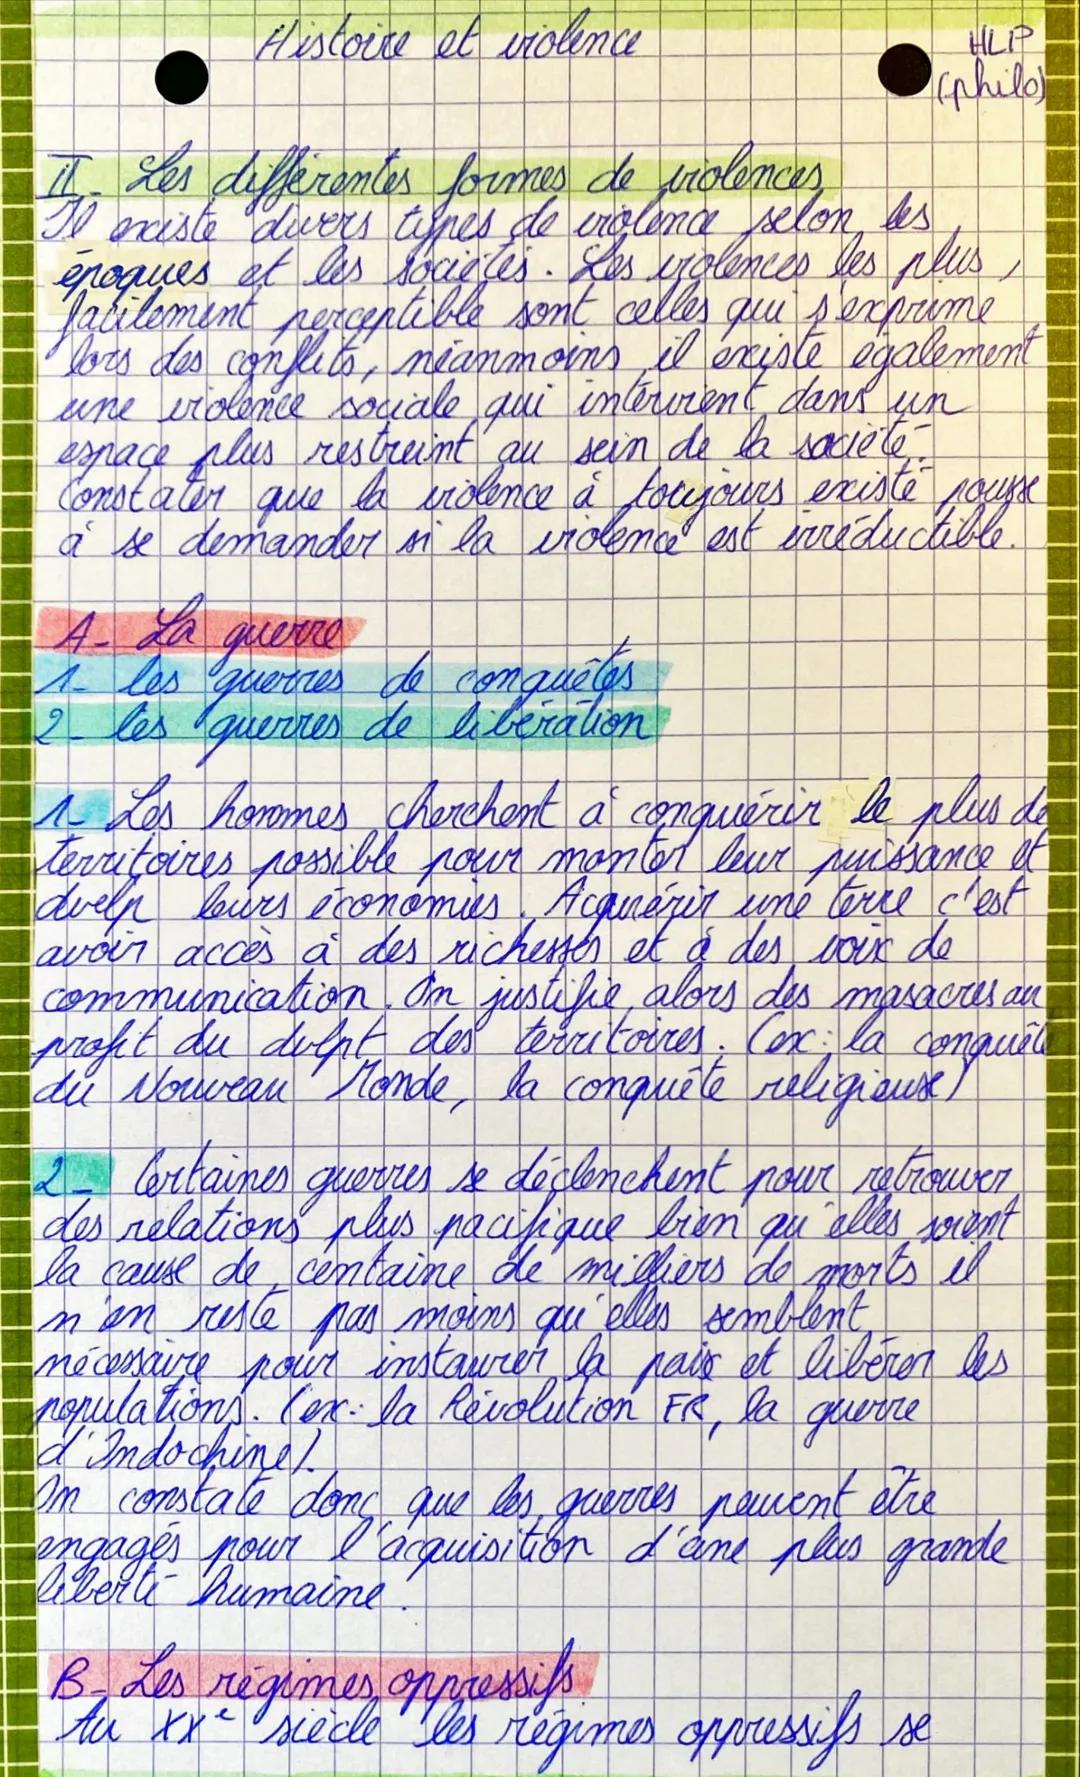 Histoire et violence
HLP
(philo)
II - Les différentes formes de violences
Il existe divers types de violence selon les
époques et les sociétés. Les violences les plus
facilement perceptible sont celles qui s'exprime
lors des conflits, néanmoins il existe également
une violence sociale qui intervient dans un
espace plus restreint au sein de la société.
Constater que la violence à toujours existé pousse
à se demander si la violence est irréductible.
A- La guerre
1- les guerres de conquêtes
2- les guerres de libération
1- Les hommes cherchent à conquérir le plus de
territoires possible pour monter leur puissance et
dvelp leurs économies. Acquérir une terre c'est
avoir accès à des richesses et à des voix de
communication. On justifie alors des masacres au
profit du dvlpt des territoires. (ex: la conquête
du Nouveau Monde, la conquête religieuse)
2- Certaines guerres se déclenchent pour retrouver
des relations plus pacifique bien qu'elles soient
la cause de centaine de milliers de morts il
n'en reste pas moins qu'elles semblent
nécessaire pour instaurer la paix et libérer les
populations. (ex: la Révolution FR, la guerre
d'Indochine).
On constate donc que les guerres peuvent être
engagés pour l'acquisition d'une plus grande
liberté humaine.
B- Les régimes oppressifs
Au XXe siècle les régimes oppressifs se